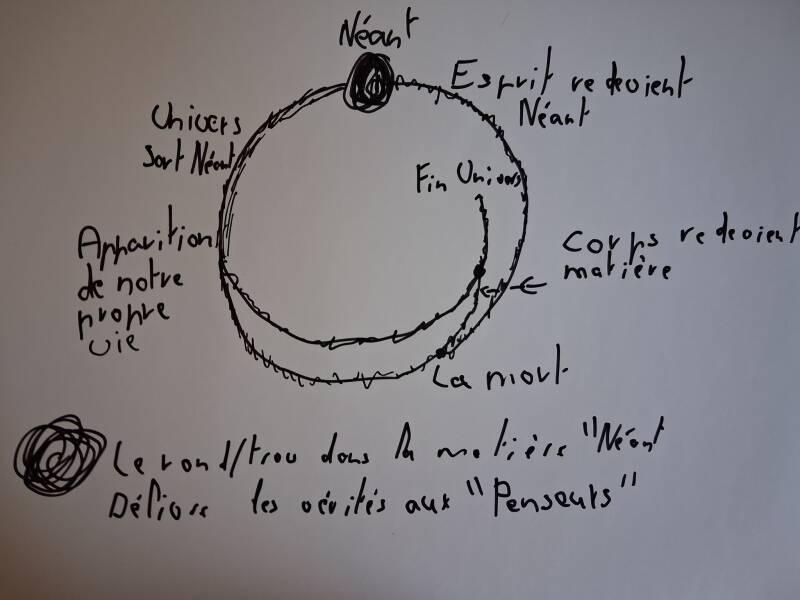 Néant
Esprit redevient
Néant
Univers
sort Néant
Fin Univers
Apparition
de notre
propre
vie
Corps redevient
matière
La mort
Le rond/trou dans la matière "Néant
Délivre les vérités aux "Penseurs"